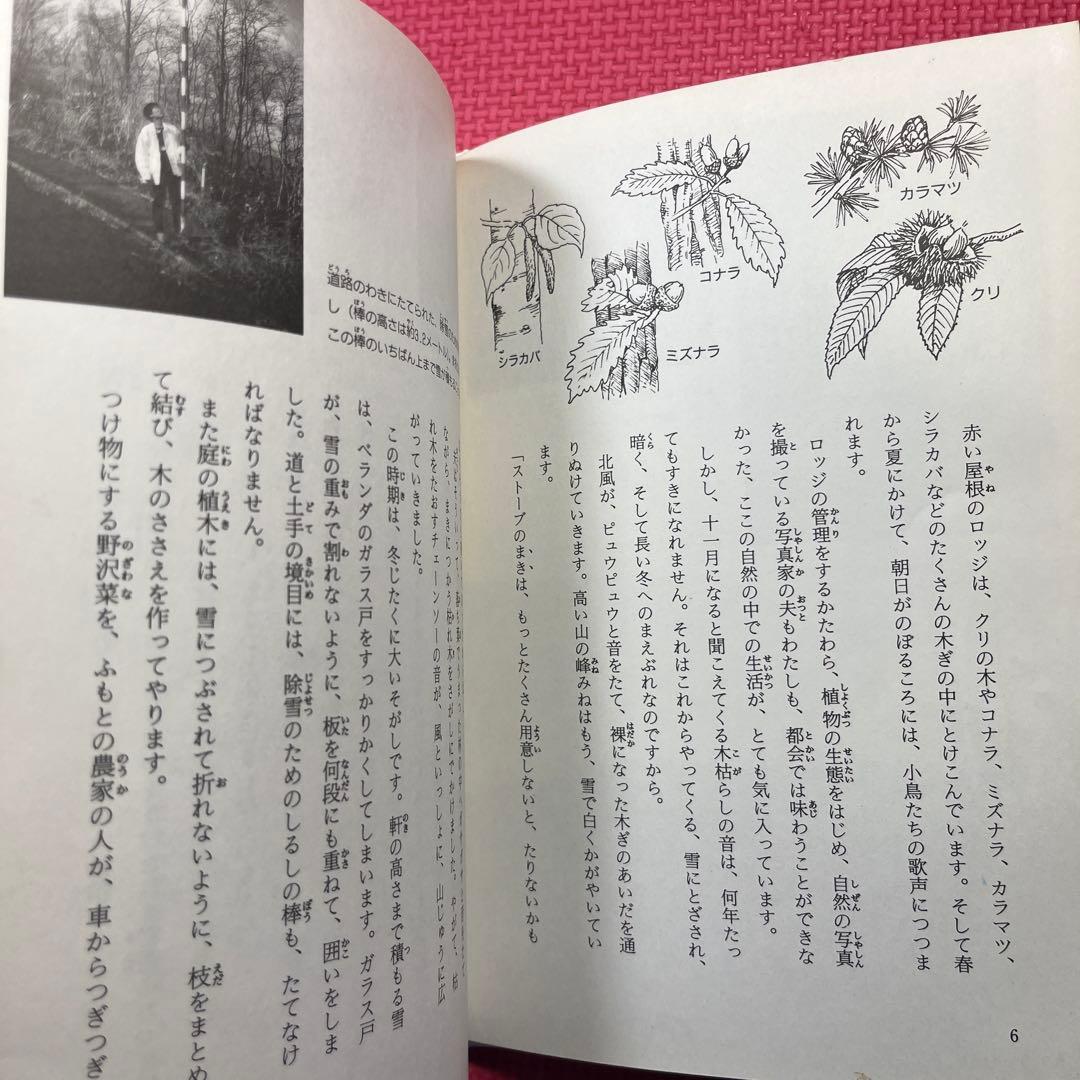 カラマツ
コナラ
クリ
シラカバ
ミズナラ
赤い屋根のロッジは、クリの木やコナラ、ミズナラ、カラマツ、
シラカバなどのたくさんの木ぎの中にとけこんでいます。そして春
から夏にかけて、朝日がのぼるころには、小鳥たちの歌声につつま
れます。
ロッジの管理をするかたわら、植物の生態をはじめ、自然の写真
を撮っている写真家の夫もわたしも、都会では味わうことができな
かった、ここの自然の中での生活が、とても気に入っています。
しかし、十一月になると聞こえてくる木枯らしの音は、何年たっ
てもすきになれません。それはこれからやってくる、雪にとざされ、
暗く、そして長い冬へのまえぶれなのですから。
北風が、ピュウピュウと音をたて、裸になった木ぎのあいだを通
りぬけていきます。高い山の峰みねはもう、雪で白くかがやいてい
ます。
「ストーブのまきは、もっとたくさん用意しないと、たりないかも
6
道路のわきにたてられた、
し（棒の高さは約3.2メートル
この棒のいちばん上まで雪が
ながら、まきにつかう枯れ木をさがしにでかけました。やがて、枯
れ木をたおすチェーンソーの音が、風といっしょに、山じゅうに広
がっていきました。
この時期は、冬じたくに大いそがしです。軒の高さまで積もる雪
は、ベランダのガラス戸をすっかりかくしてしまいます。ガラス戸
が、雪の重みで割れないように、板を何段にも重ねて、囲いをしま
した。道と土手の境目には、除雪のためのしるしの棒も、たてなけ
ればなりません。
また庭の植木には、雪につぶされて折れないように、枝をまとめ
て結び、木のささえを作ってやります。
つけ物にする野沢菜を、ふもとの農家の人が、車からつぎつぎ